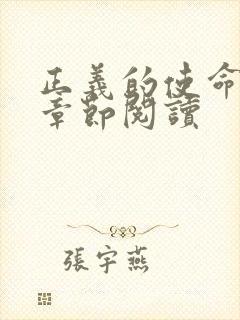 正義的使命
章節閱讀
張宇燕